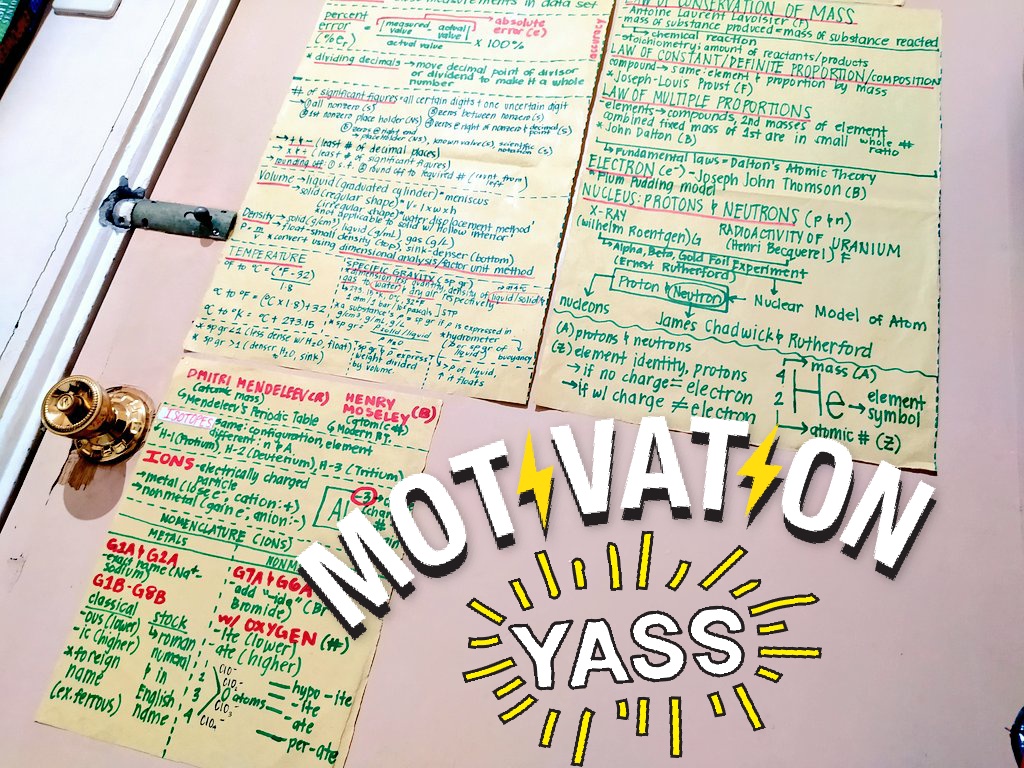 measurements in data set
percent error (% er) = measured value - actual value / actual value x 100%
→ absolute error (e)
accuracy
* dividing decimals → move decimal point of divisor
or dividend to make it a whole
number
# of significant figures = all certain digits + one uncertain digit
① all nonzero (s) ② zeros between nonzero (s)
③ 1st nonzero place holder (NS) ④ zeros @ right of nonzero & decimal point (s)
⑤ zeros @ right end
→ place holder (NS), known value (s) scientific notation (s)
→ + & - (least # of decimal places)
→ x & ÷ (least # of significant figures)
* rounding off: ① s.f. ② round off to required # (count from left)
Volume → liquid (graduated cylinder) * meniscus
→ solid (regular shape) * V = l x w x h
(irregular shape) * water displacement method
* not applicable to solid w/ hollow interior
Density → solid (g/cm³) liquid (g/mL) gas (g/L)
→ float-small density (top), sink-denser (bottom)
* convert using dimensional analysis/factor unit method
TEMPERATURE
°F to °C = (°F - 32)
1.8
°C to °F = (°C x 1.8) + 32
°C to °K = °C + 273.15
* sp gr < 1 (less dense w/ H₂O, float)
* sp gr > 1 (denser H₂O, sink)
SPECIFIC GRAVITY (sp gr)
* dimension less quantity, density of liquid/solid &
gas to (water) & dry air respectively
STP
* a substance's ρ = sp gr if ρ is expressed in
g/cm³, g/mL, g/L
* sp gr = ρ solid/liquid
ρ H₂O
* sp gr & ρ express
weight divided
by volume
* hydrometer
→ sp gr of
liquid
buoyancy
* > ρ of liquid,
↑ it floats
LAW OF CONSERVATION OF MASS
Antoine Laurent Lavoisier (F)
mass of substance produced = mass of substance reacted
→ chemical reaction
→ stoichiometry: amount of reactants/products
LAW OF CONSTANT/DEFINITE PROPORTION/COMPOSITION
compound → same element & proportion by mass
* Joseph-Louis Proust (F)
LAW OF MULTIPLE PROPORTIONS
-elements → compounds, 2nd masses of element
combined fixed mass of 1st are in small whole # ratio
* John Dalton (B)
→ fundamental laws = Dalton's Atomic Theory
ELECTRON (e⁻) - Joseph John Thomson (B)
* Plum Pudding model
NUCLEUS: PROTONS & NEUTRONS (p & n)
X-RAY
(wilhelm Roentgen) G
RADIOACTIVITY OF URANIUM
(Henri Becquerel) F
→ Alpha, Beta, Gold Foil Experiment
(Ernest Rutherford)
Proton & Neutron
nucleons
Nuclear Model of Atom
James Chadwick & Rutherford
(A) protons & neutrons
(Z) element identity, protons
→ if no charge = electron
→ If w/ charge ≠ electron
4
2
He
→ mass (A)
→ element
symbol
→ atomic # (Z)
DMITRI MENDELEEV (R)
(atomic mass)
↳ Mendeleev's Periodic Table
HENRY
MOSELEY (B)
(atomic #)
↳ Modern P.T.
ISOTOPES same: configuration, element
different: n & A
H-1 (Protium), H-2 (Deuterium), H-3 (Tritium)
IONS - electrically charged
particle
→ metal (lose e⁻, cation: +)
→ nonmetal (gain e⁻, anion: -)
Al
3
NOMENCLATURE (IONS)
METALS
G1A & G2A
-exact name (Na⁺-
sodium)
G1B-G8B
classical
-ous (lower)
-ic (higher)
* foreign
name
(ex. ferrous)
stock
↳ roman
numeral
& in
English
name
G7A & G6A
-add "-ide" (Br
Bromide)
w/ OXYGEN (#)
-ite (lower)
-ate (higher)
1 ClO⁻
2 ClO₂⁻
3 ClO₃⁻
4 ClO₄⁻
O atoms
hypo-ite
-ite
-ate
per-ate
MOTIVATION
YASS